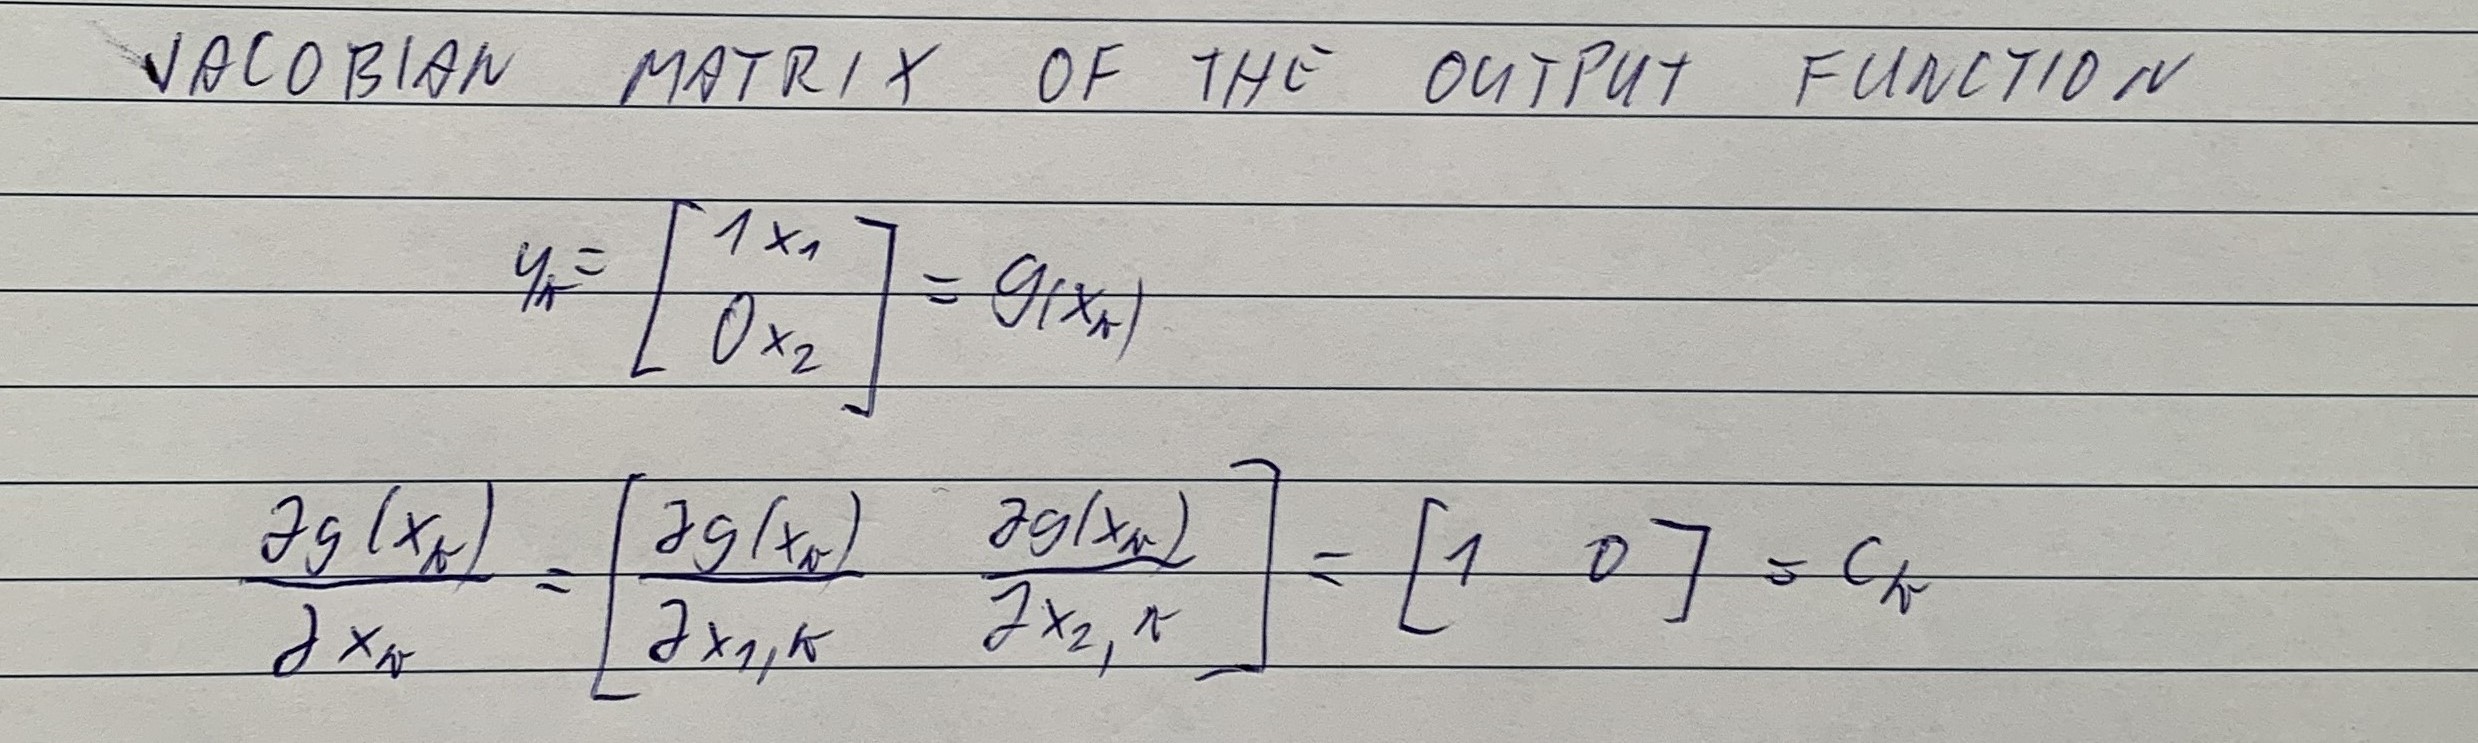 JACOBIAN MATRIX OF THE OUTPUT FUNCTION
y_k = [ 1x_1 ; 0x_2 ] = g(x_k)
∂g(x_k)/∂x_k = [ ∂g(x_k)/∂x_{1,k}  ∂g(x_k)/∂x_{2,k} ] = [ 1  0 ] = C_k